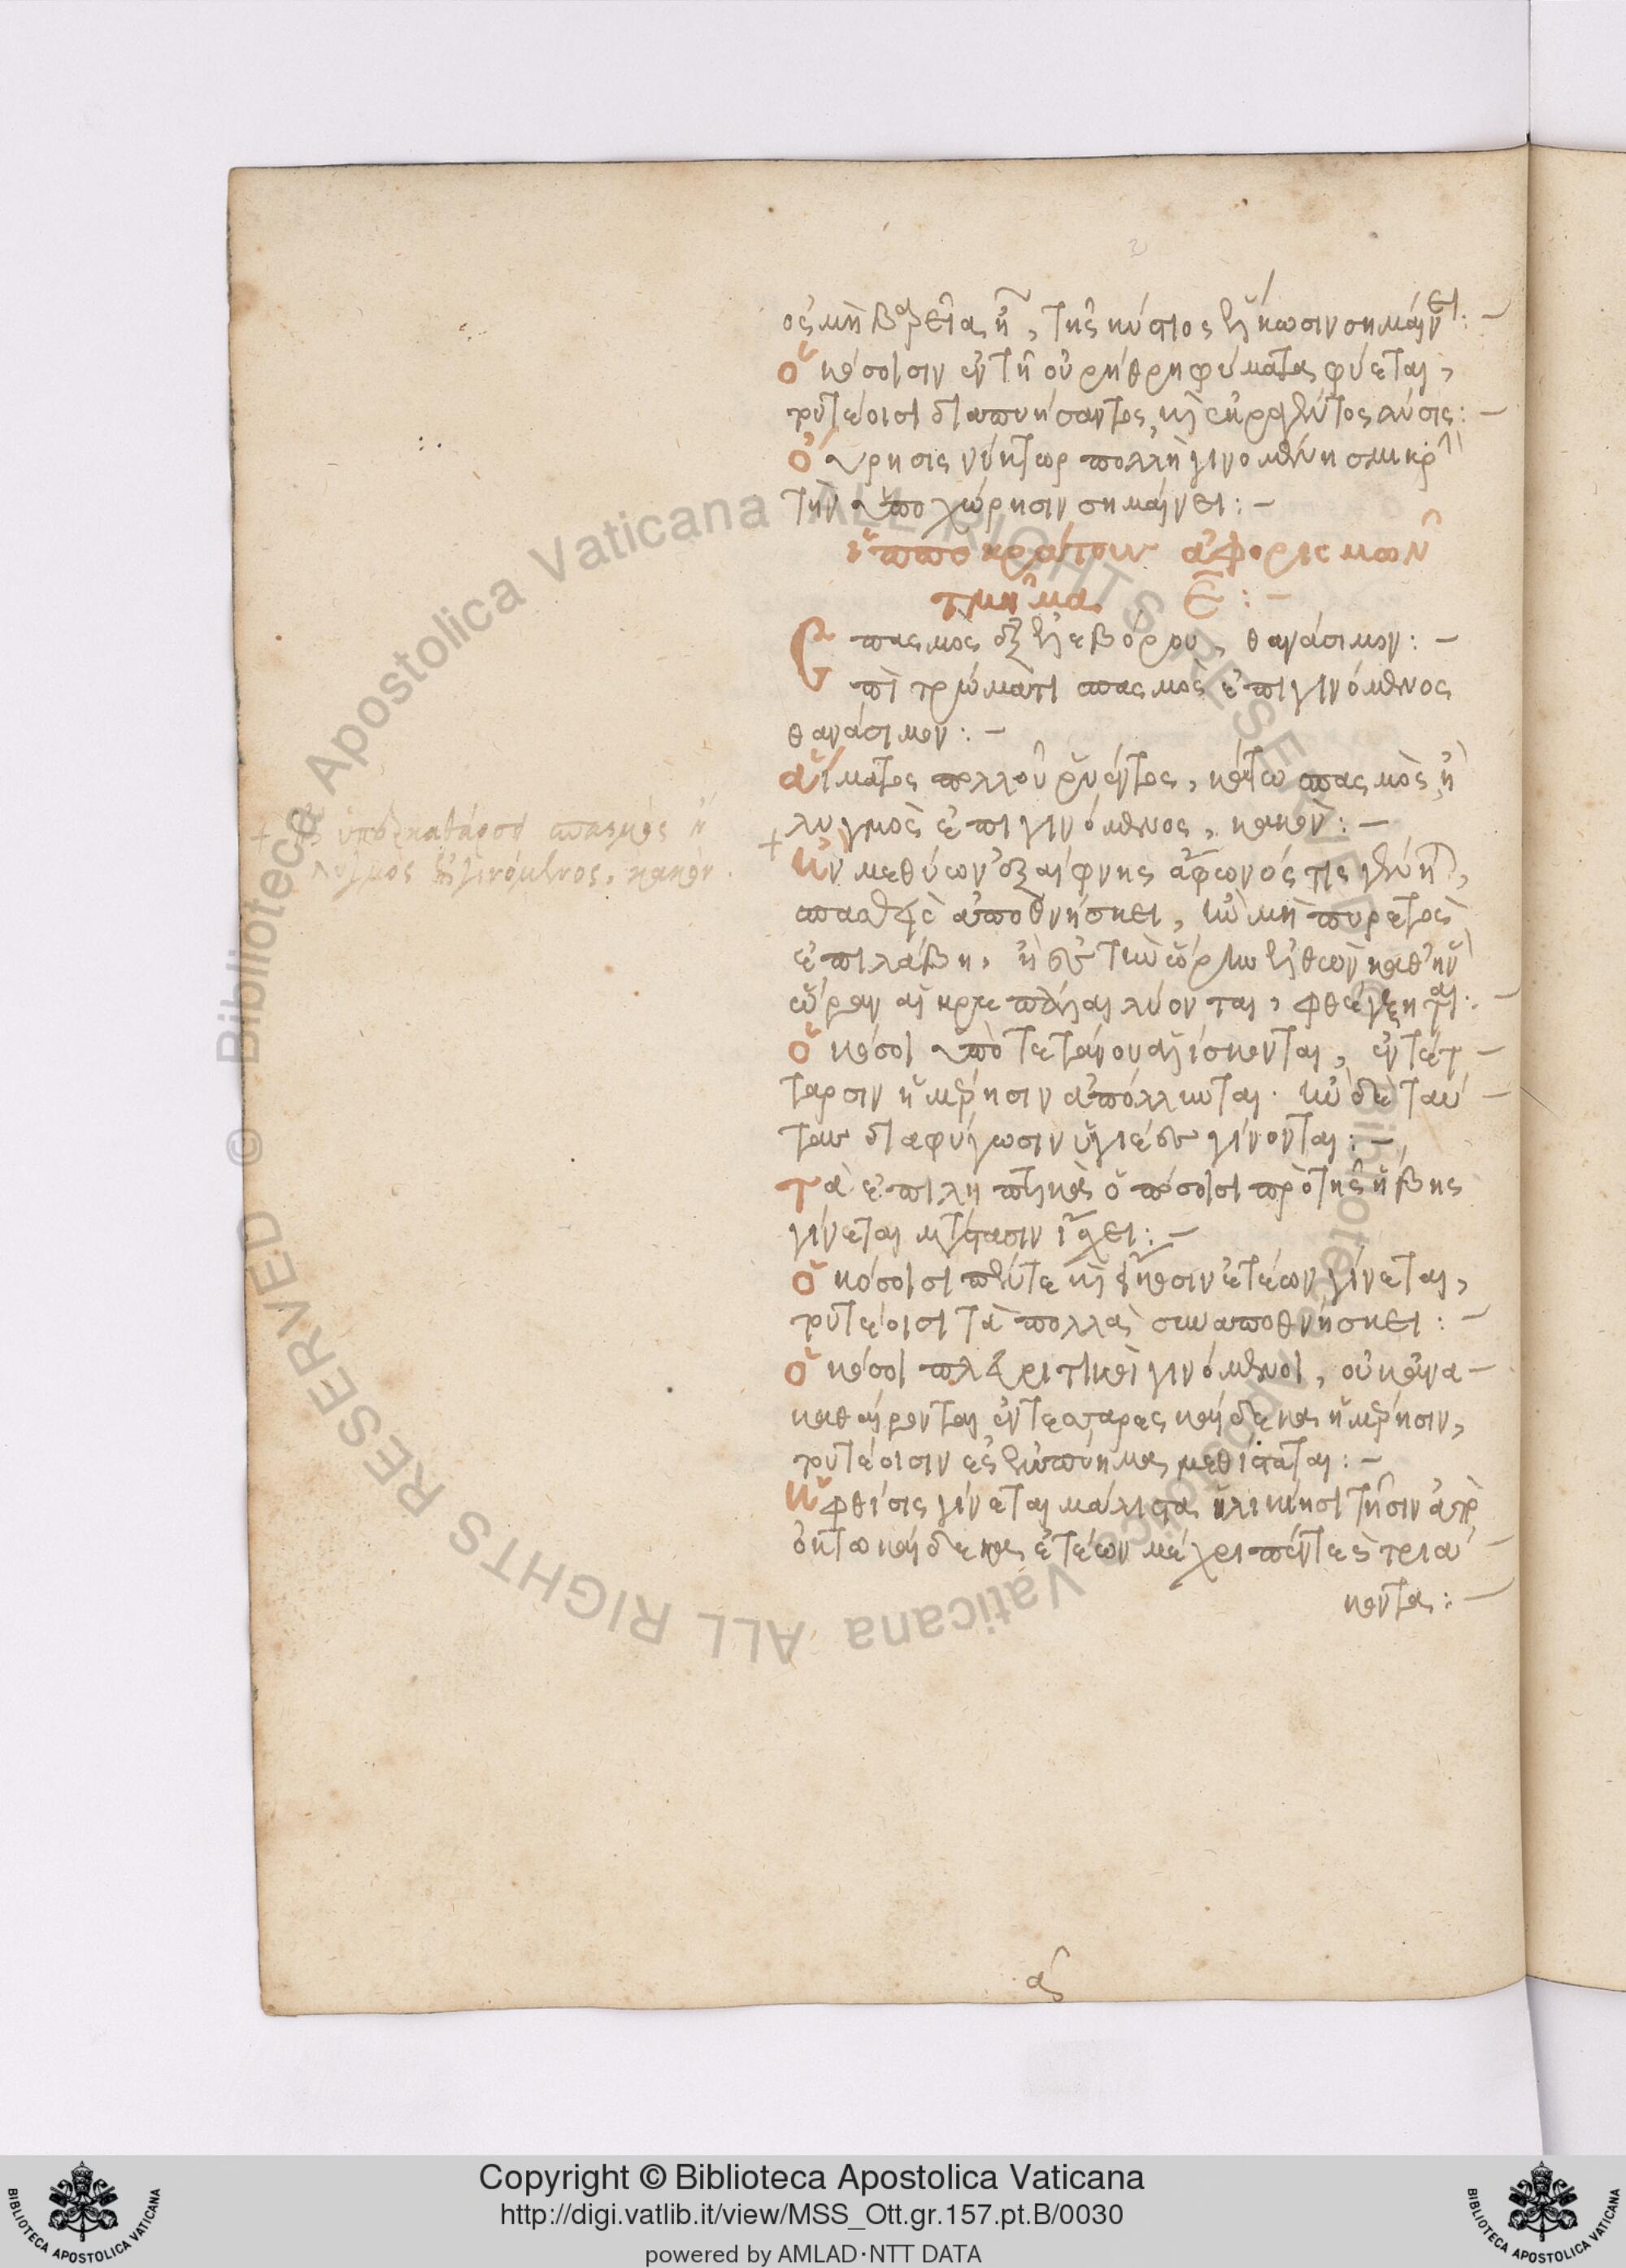 ὀσμὴ βαρεῖα ἦ, τῆς κύστιος ἕλκωσιν σημαίνει:-
ὁκόσοισιν ἐν τῇ οὐρήθρῃ φύματα φύεται,
τουτέοισι διαπυήσαντος, καὶ ἐκραγέντος λύσις:-
οὔρησις νύκτωρ πολλὴ γινομένη σμικρὴν
τὴν ὑποχώρησιν σημαίνει:-
ἱπποκράτους ἀφορισμῶν
τμῆμα Ε:-
Σπασμὸς ἐξ ἐλεβόρου, θανάσιμον:-
Ἐπὶ τρώματι σπασμὸς ἐπιγινόμενος
θανάσιμον:-
αἵματος πολλοῦ ῥυέντος, κάτω σπασμὸς ἢ
λυγμὸς ἐπιγινόμενος, κακόν:-
+ ὑπερκαθάρσει σπασμὸς ἢ
λυγμὸς ἐπιγινόμενος, κακόν.
+
ἢν μεθύων ἐξαίφνης ἄφωνός τις γένηται,
σπασθεὶς ἀποθνήσκει, ἢν μὴ πυρετὸς
ἐπιλάβῃ, ἢ εἰς τὴν ὥρην ἐλθὼν καθ' ἣν
ὥρην αἱ κραιπάλαι λύονται, φθέγξηται:-
ὁκόσοι ὑπὸ τετάνου ἁλίσκονται, ἐν τέτ-
ταρσιν ἡμέρησιν ἀπόλλυνται. ἢν δὲ ταύ-
τας διαφύγωσιν ὑγιέες γίνονται:-
τὰ ἐπιληπτικὰ ὁπόσοισι πρὸ τῆς ἥβης
γίνεται μετάστασιν ἴσχει:-
ὁκόσοισι πέντε καὶ εἴκοσιν ἐτέων γίνεται,
τουτέοισι τὰ πολλὰ συναποθνήσκει:-
ὁκόσοι πλευριτικοὶ γινόμενοι, οὐκ ἀνα-
καθαίρονται ἐν τεσσαρεσκαίδεκα ἡμέρησιν,
τουτέοισιν ἐς ἐμπύημα μεθίσταται:-
ἡ φθίσις γίνεται μάλιστα ἡλικίῃσι τῇσιν ἀπὸ
ὀκτωκαίδεκα ἐτέων μέχρι πέντε καὶ τριά-
κοντα:-
Copyright © Biblioteca Apostolica Vaticana
http://digi.vatlib.it/view/MSS_Ott.gr.157.pt.B/0030
powered by AMLAD·NTT DATA
BIBLIOTECA APOSTOLICA VATICANA
BIBLIOTECA APOSTOLICA VATICANA
© Biblioteca Apostolica Vaticana ALL RIGHTS RESERVED
© Biblioteca Apostolica Vaticana ALL RIGHTS RESERVED